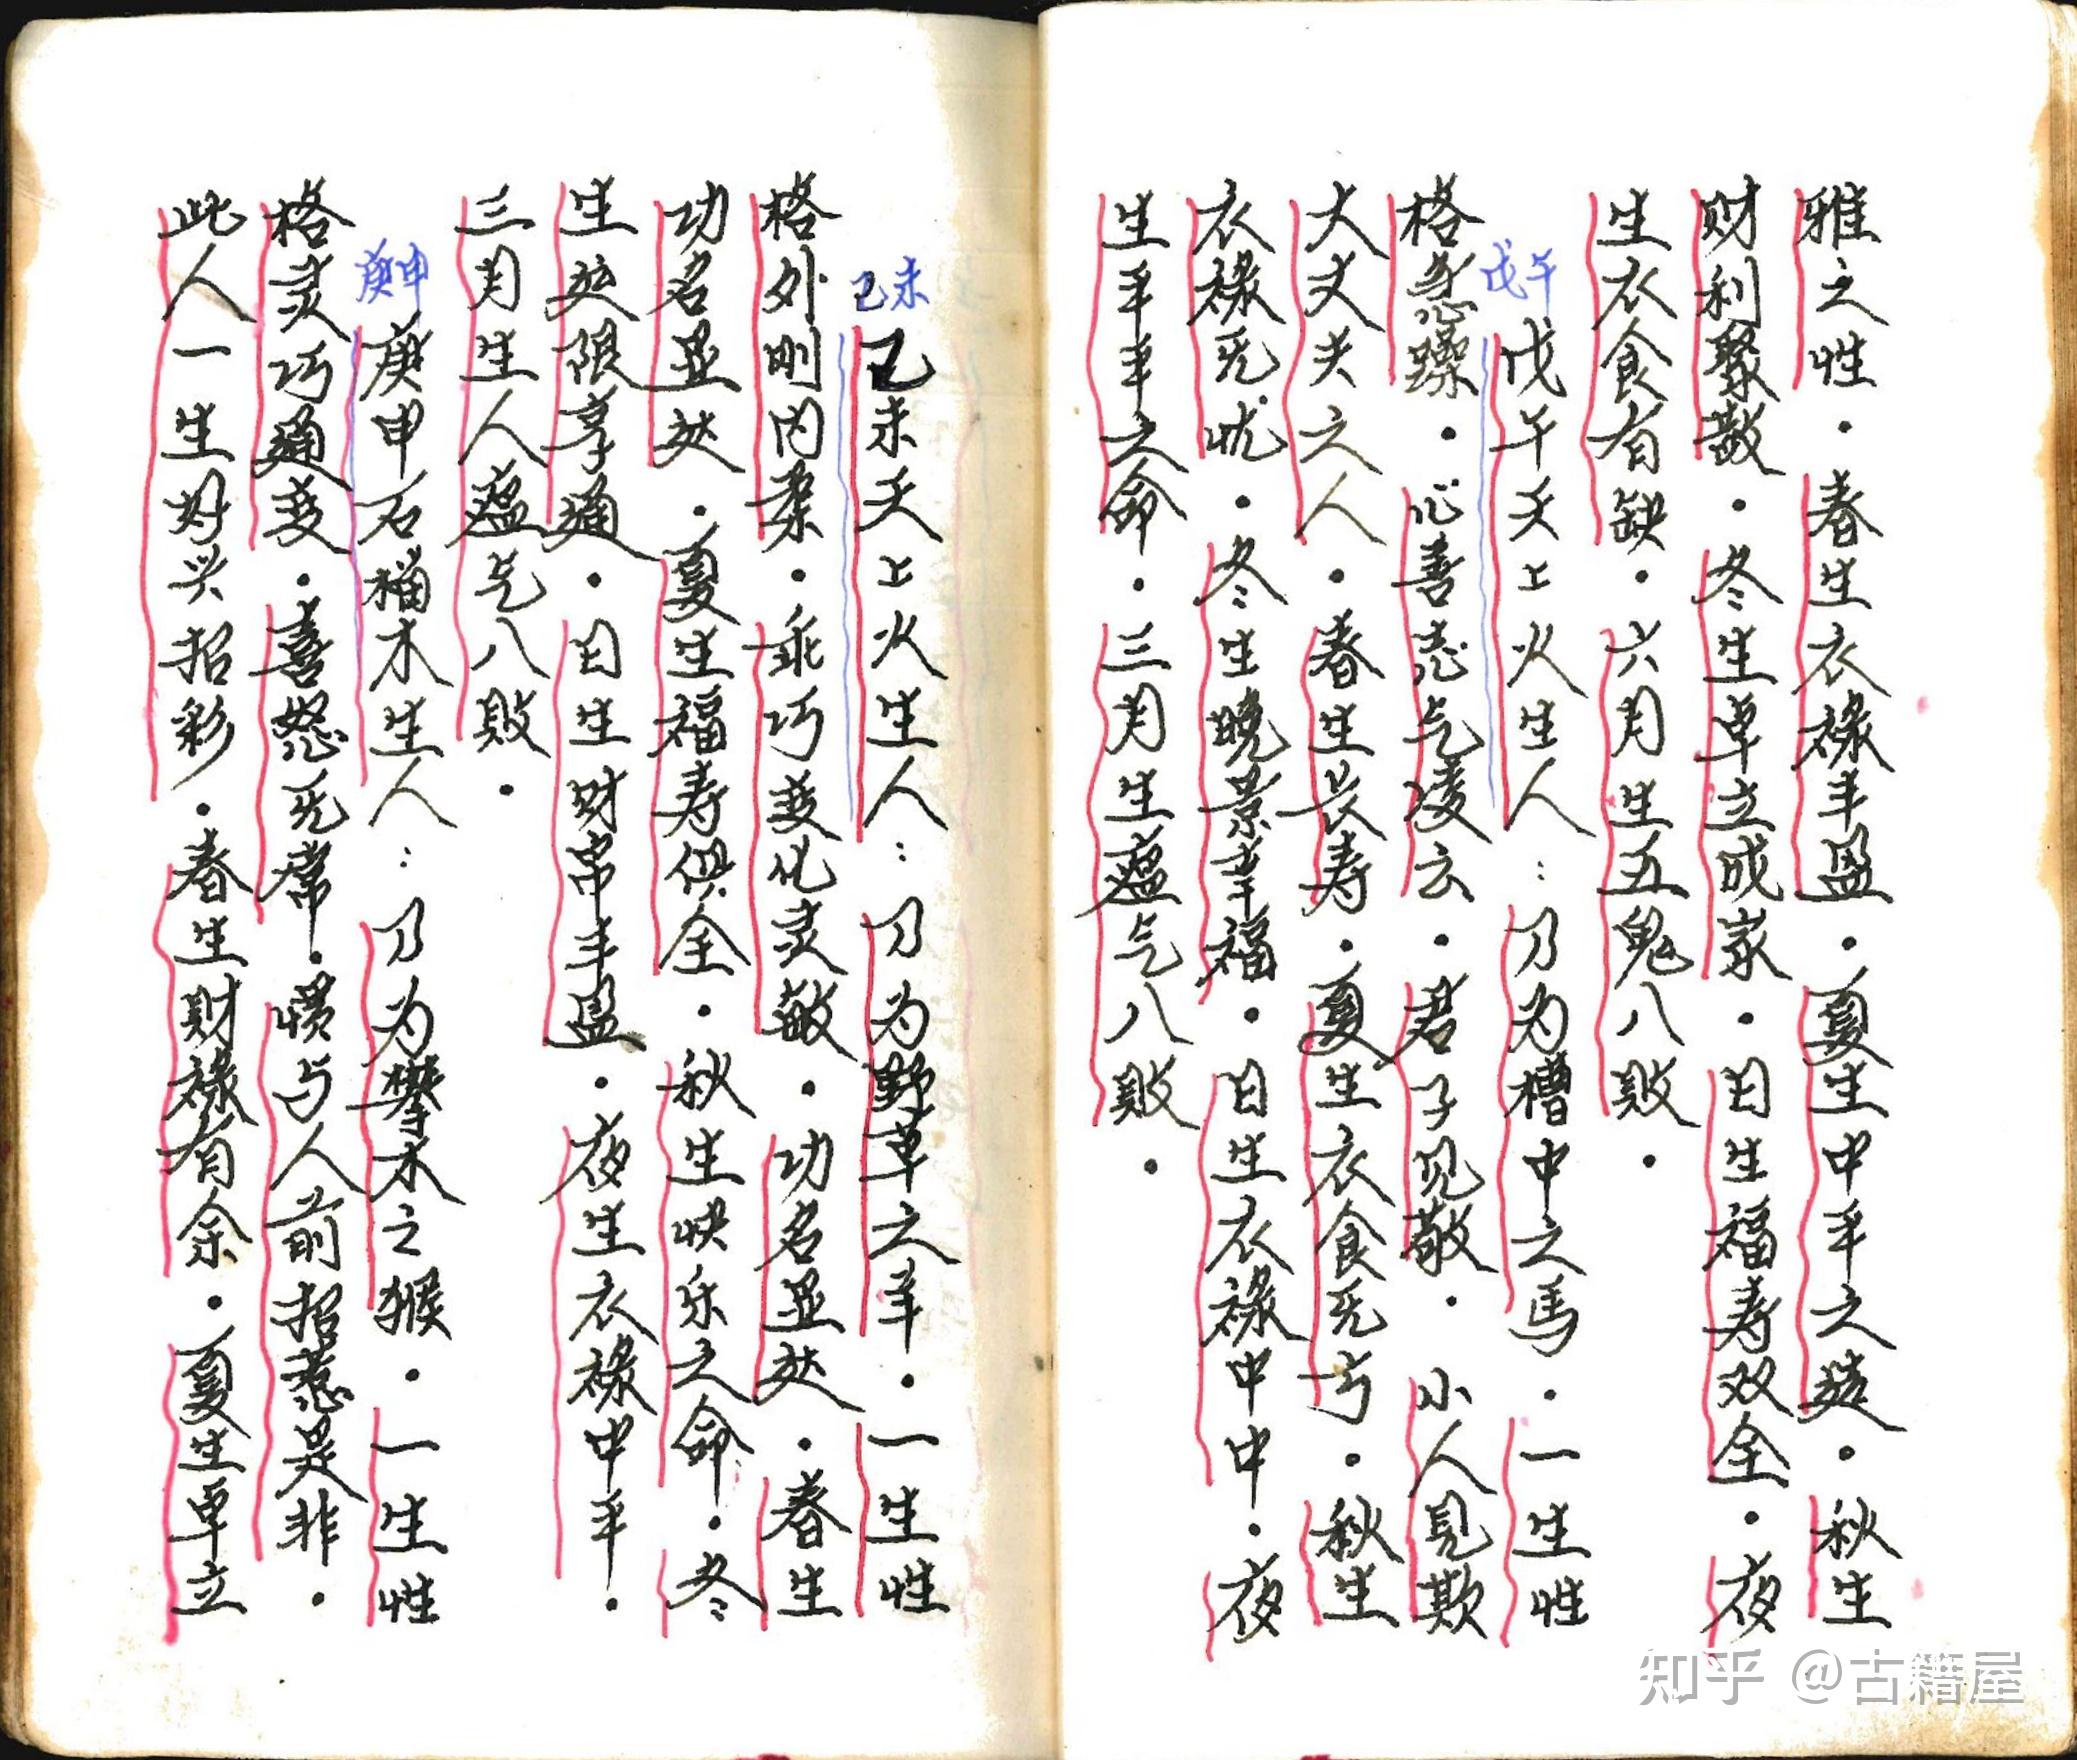 雅之性．春生衣禄丰盈．夏生中平之造．秋生
财利聚散．冬生卓立成家．日生福寿双全．夜
生衣食有缺．六月生五鬼八败．
戊午
戊午天上火生人：乃为槽中之馬．一生性
格急躁．心善志气凌云．君子见敬．小人見欺
大丈夫之人．春生长寿．夏生衣食无亏．秋生
衣禄无忧．冬生晚景幸福．日生衣禄中中．夜
生平平之命．三月生瘟气八败．
己未
己未天上火生人：乃为野草之羊．一生性
格外刚内柔．乖巧变化灵敏．功名显达．春生
功名显达．夏生福寿俱全．秋生快乐之命．冬
生处限享通．日生财帛丰盈．夜生衣禄中平．
三月生人瘟气八败．
庚申
庚申石榴木生人：乃为攀木之猴．一生性
格灵巧通变．喜怒无常．惯与人前招惹是非．
此人一生好兴招彩．春生财禄有余．夏生卓立
知乎 @古籍屋